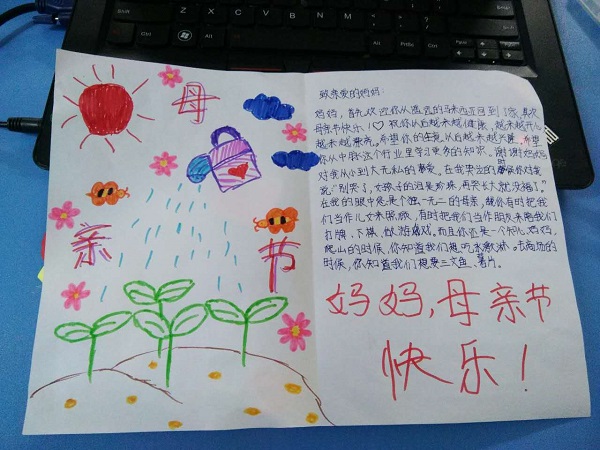 母
亲
节
致亲爱的妈妈:
妈妈,首先欢迎你从遥远的马来西亚回到了家,其次
母亲节快乐!祝你从后越来越健康、越来越开心
越来越漂亮。希望你的生意从后越来越兴隆。希望
你从中脉这个行业里学习更多的知识。谢谢妈妈
对我从小到大无私的奉爱。在我哭泣的时候你对我
说"别哭了,女孩子的泪是珍珠,再哭长大就没福了。"
在我的眼中您是个独一无二的母亲,既你有时把我
们当作儿女来照顾,有时把我们当作朋友来陪我们
打牌、下棋、做游戏。而且你还是一个知心妈妈,
爬山的时候,你知道我们想吃冰激淋。去商场的
时候,你知道我们想要三文鱼、薯片。
妈妈,母亲节
快乐!